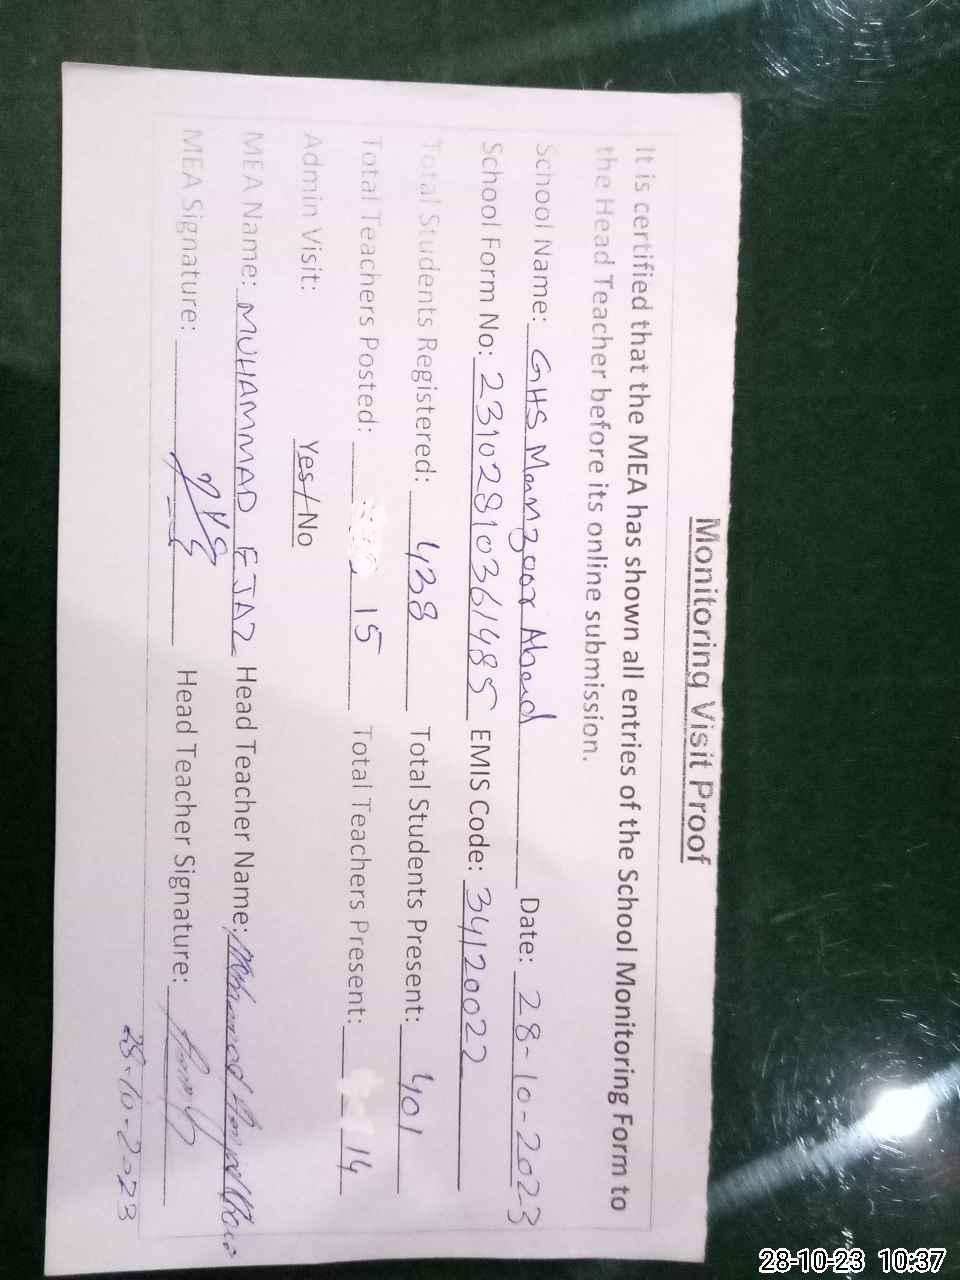 Monitoring Visit Proof
It is certified that the MEA has shown all entries of the School Monitoring Form to
the Head Teacher before its online submission.
School Name: GHS Manzoor Abad Date: 28-10-2023
School Form No: 23102810361485 EMIS Code: 34120022
Total Students Registered: 438 Total Students Present: 401
Total Teachers Posted: 15 Total Teachers Present: 14
Admin Visit: Yes/No
MEA Name: MUHAMMAD EJAZ Head Teacher Name: Muhammad
MEA Signature: Head Teacher Signature:
28-10-2023
28-10-23 10:37